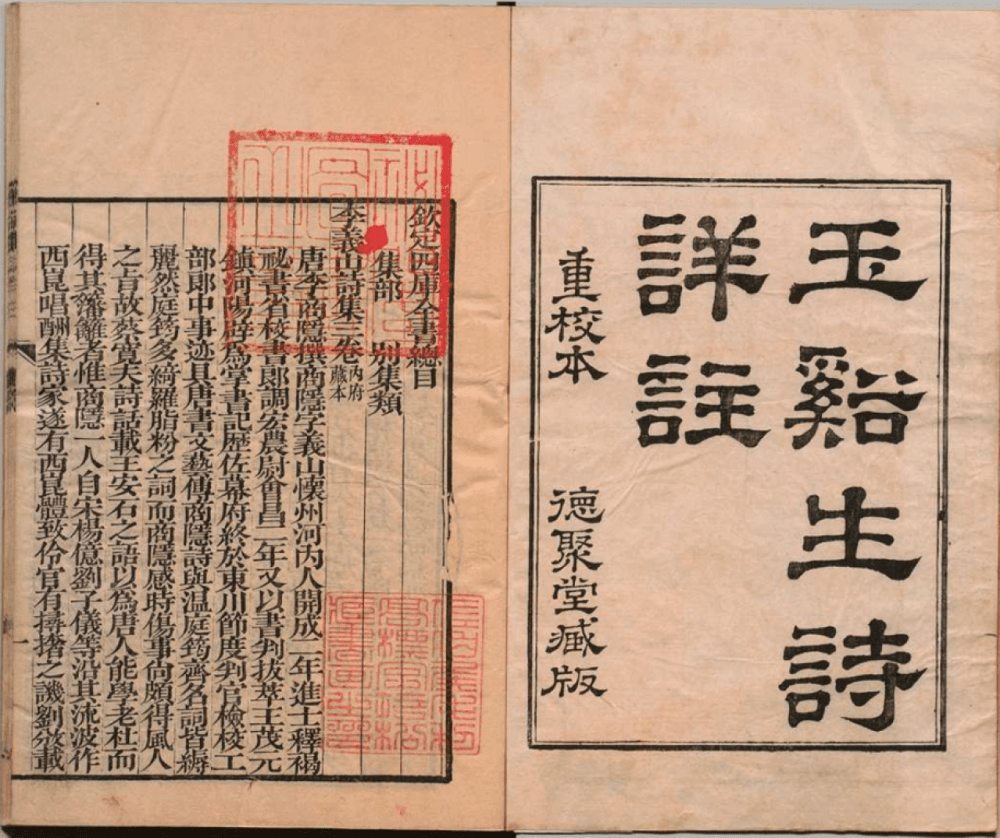 玉谿生詩
詳註
重校本　德聚堂藏版
欽定四庫全書總目
集部　別集類
李義山詩集三卷內府藏本
唐李商隱撰商隱字義山懷州河內人開成二年進士釋褐
祕書省校書郎調宏農尉會昌二年又以書判拔萃王茂元
鎮河陽辟爲掌書記歷佐幕府終於東川節度判官檢校工
部郎中事迹具唐書文藝傳商隱詩與温庭筠齊名詞皆縟
麗然庭筠多綺羅脂粉之詞而商隱感時傷事尙頗得風人
之旨故蔡寬夫詩話載王安石之語以爲唐人能學老杜而
得其藩籬者惟商隱一人自宋楊億劉子儀等沿其流波作
西崑唱酬集詩家遂有西崑體致伶官有撏撦之譏劉攽載
一